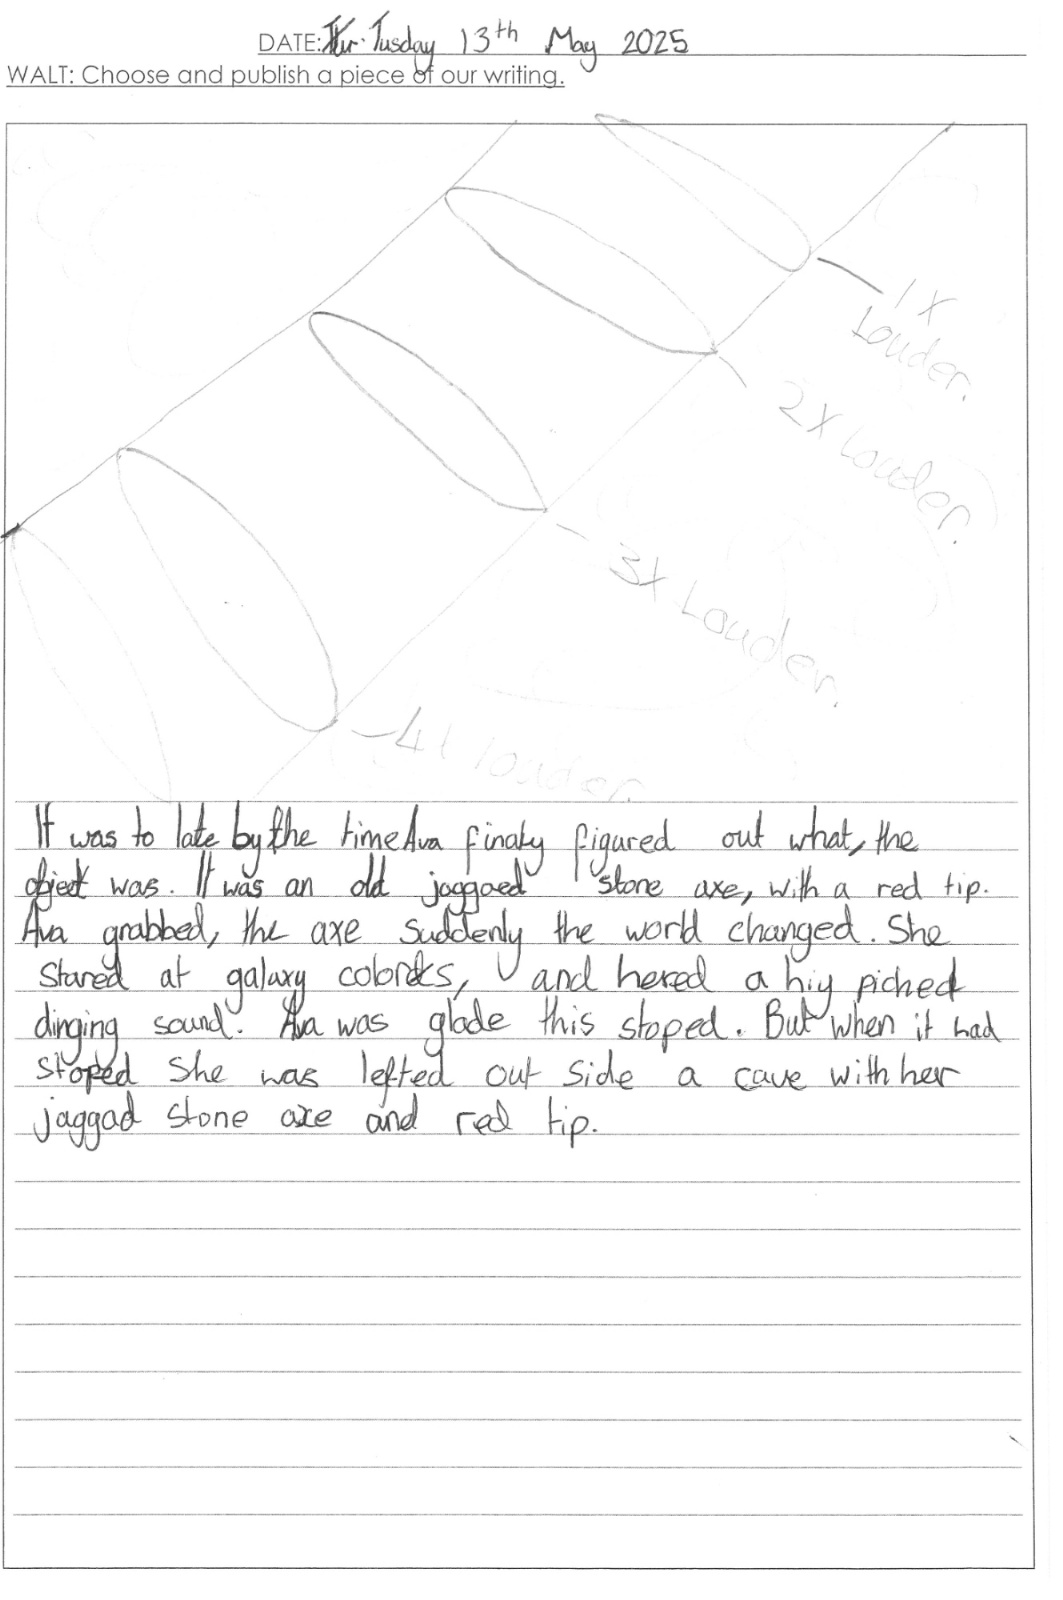 DATE: Tusday 13th May 2025
WALT: Choose and publish a piece of our writing.
1X
Louder.
2X Louder.
3X Louder.
4x louder.
It was to late by the time Ava finaly figured out what, the
object was. It was an old jaggaed stone axe, with a red tip.
Ava grabbed, the axe suddenly the world changed. She
stared at galaxy colors, and hered a hiy piched
dinging sound. Ava was glade this stoped. But when it had
stoped she was lefted out side a cave with her
jaggad stone axe and red tip.